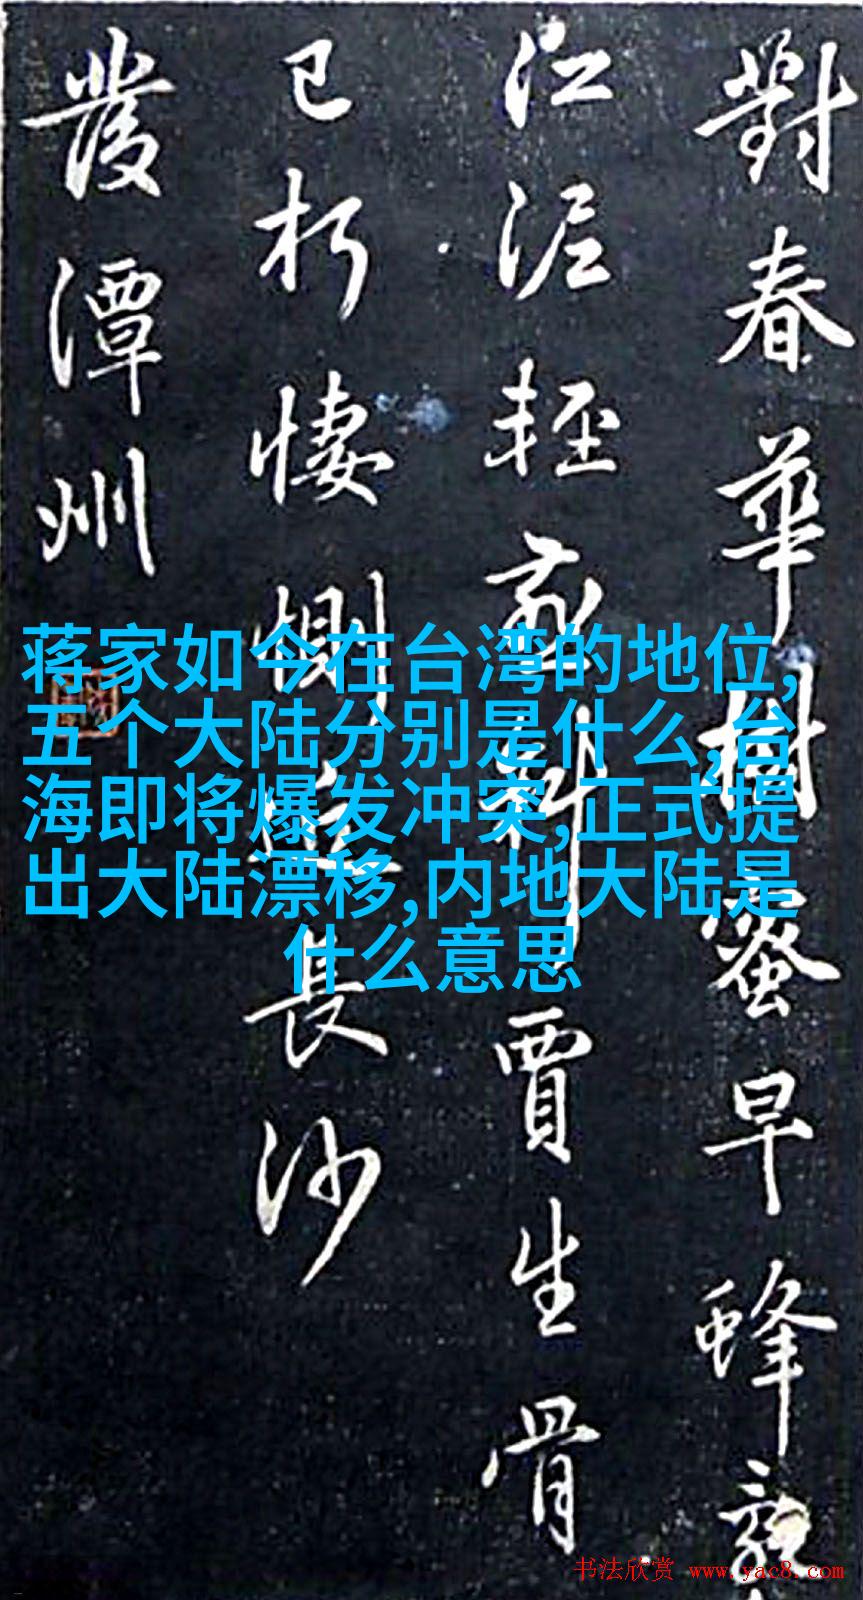 對春華樹蜜早蜂
江泥輕燕斜賈生骨
已朽悽惻近長沙
發潭州
蒋家如今在台湾的地位,
五个大陆分别是什么,台
海即将爆发冲突,正式提
出大陆漂移,内地大陆是
什么意思
书法欣赏 www.yac8.com